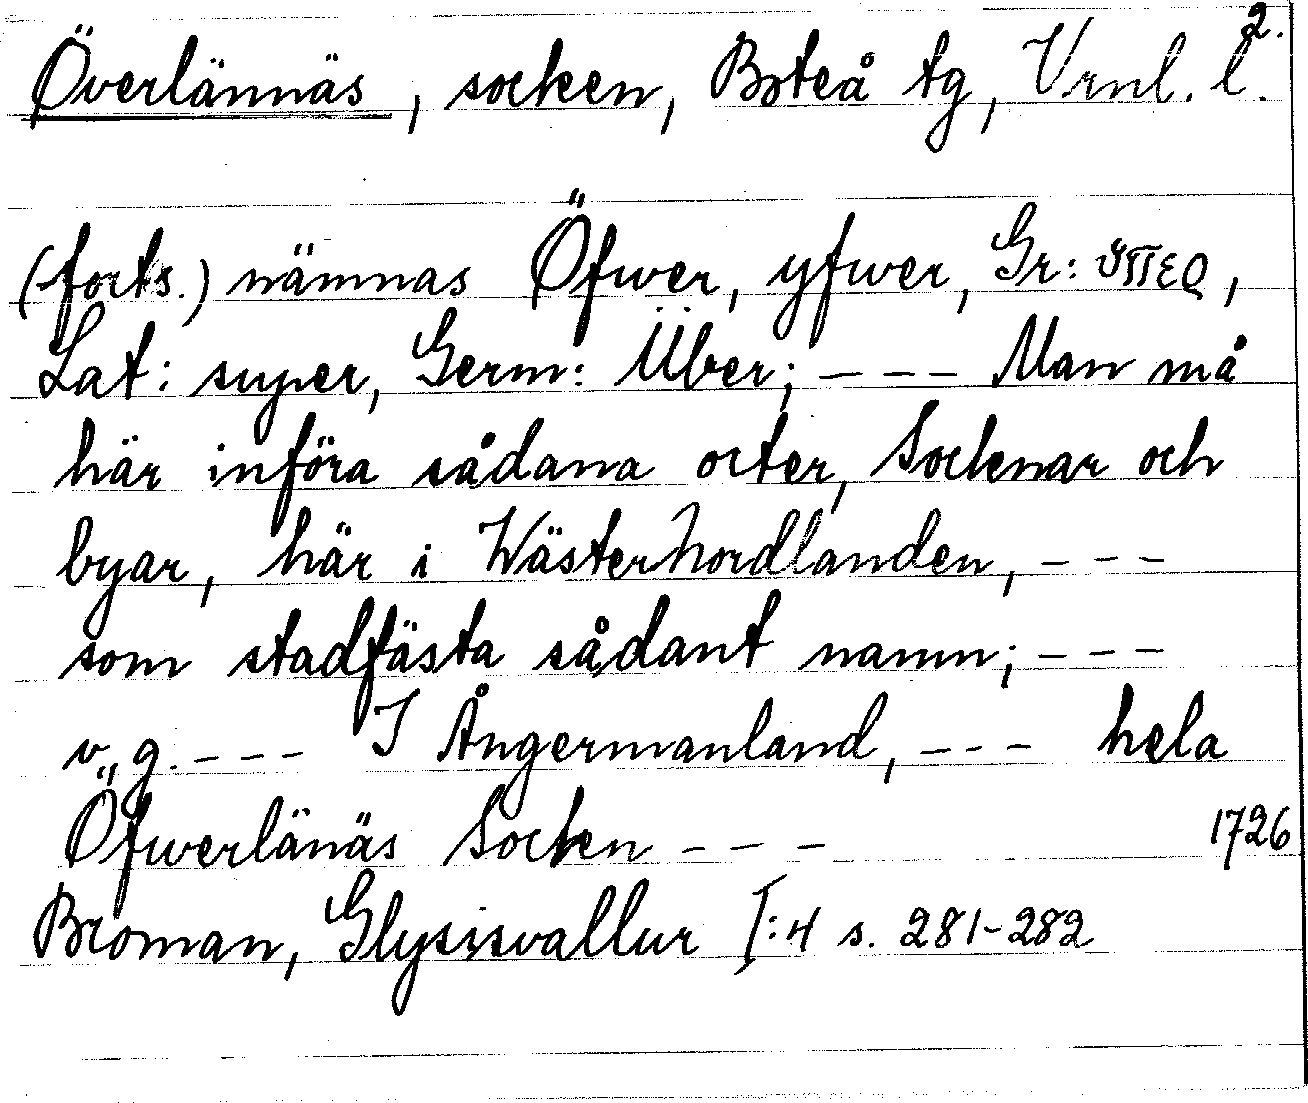 2.
Överlännäs, socken, Boteå tg, Vrnl. l.
(forts.) nämnas Öfwer, yfwer, Gr: ὑπερ,
Lat: super, Germ: Über; --- Man må
här införa sådana orter, Socknar och
byar, här i Wästerhordlanden, ---
som stadfästa sådant namn; ---
v, g. --- I Ångermanland, --- hela
Öfwerlänäs Socken --- 1726
Broman, Glysisvallur I:4 s. 281-282